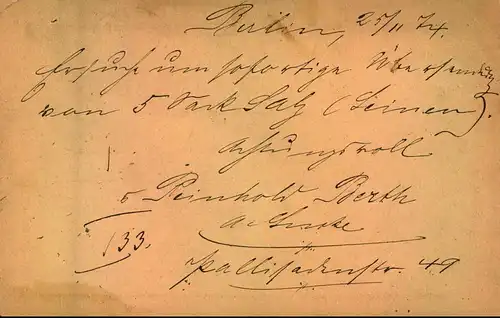 Berlin, 25/11 74.
Ersuche um sofortige Übersendung
von 5 Sack Salz (Leinen).
Achtungsvoll
Reinhold Berth
133.
Pallisadenstr. 49